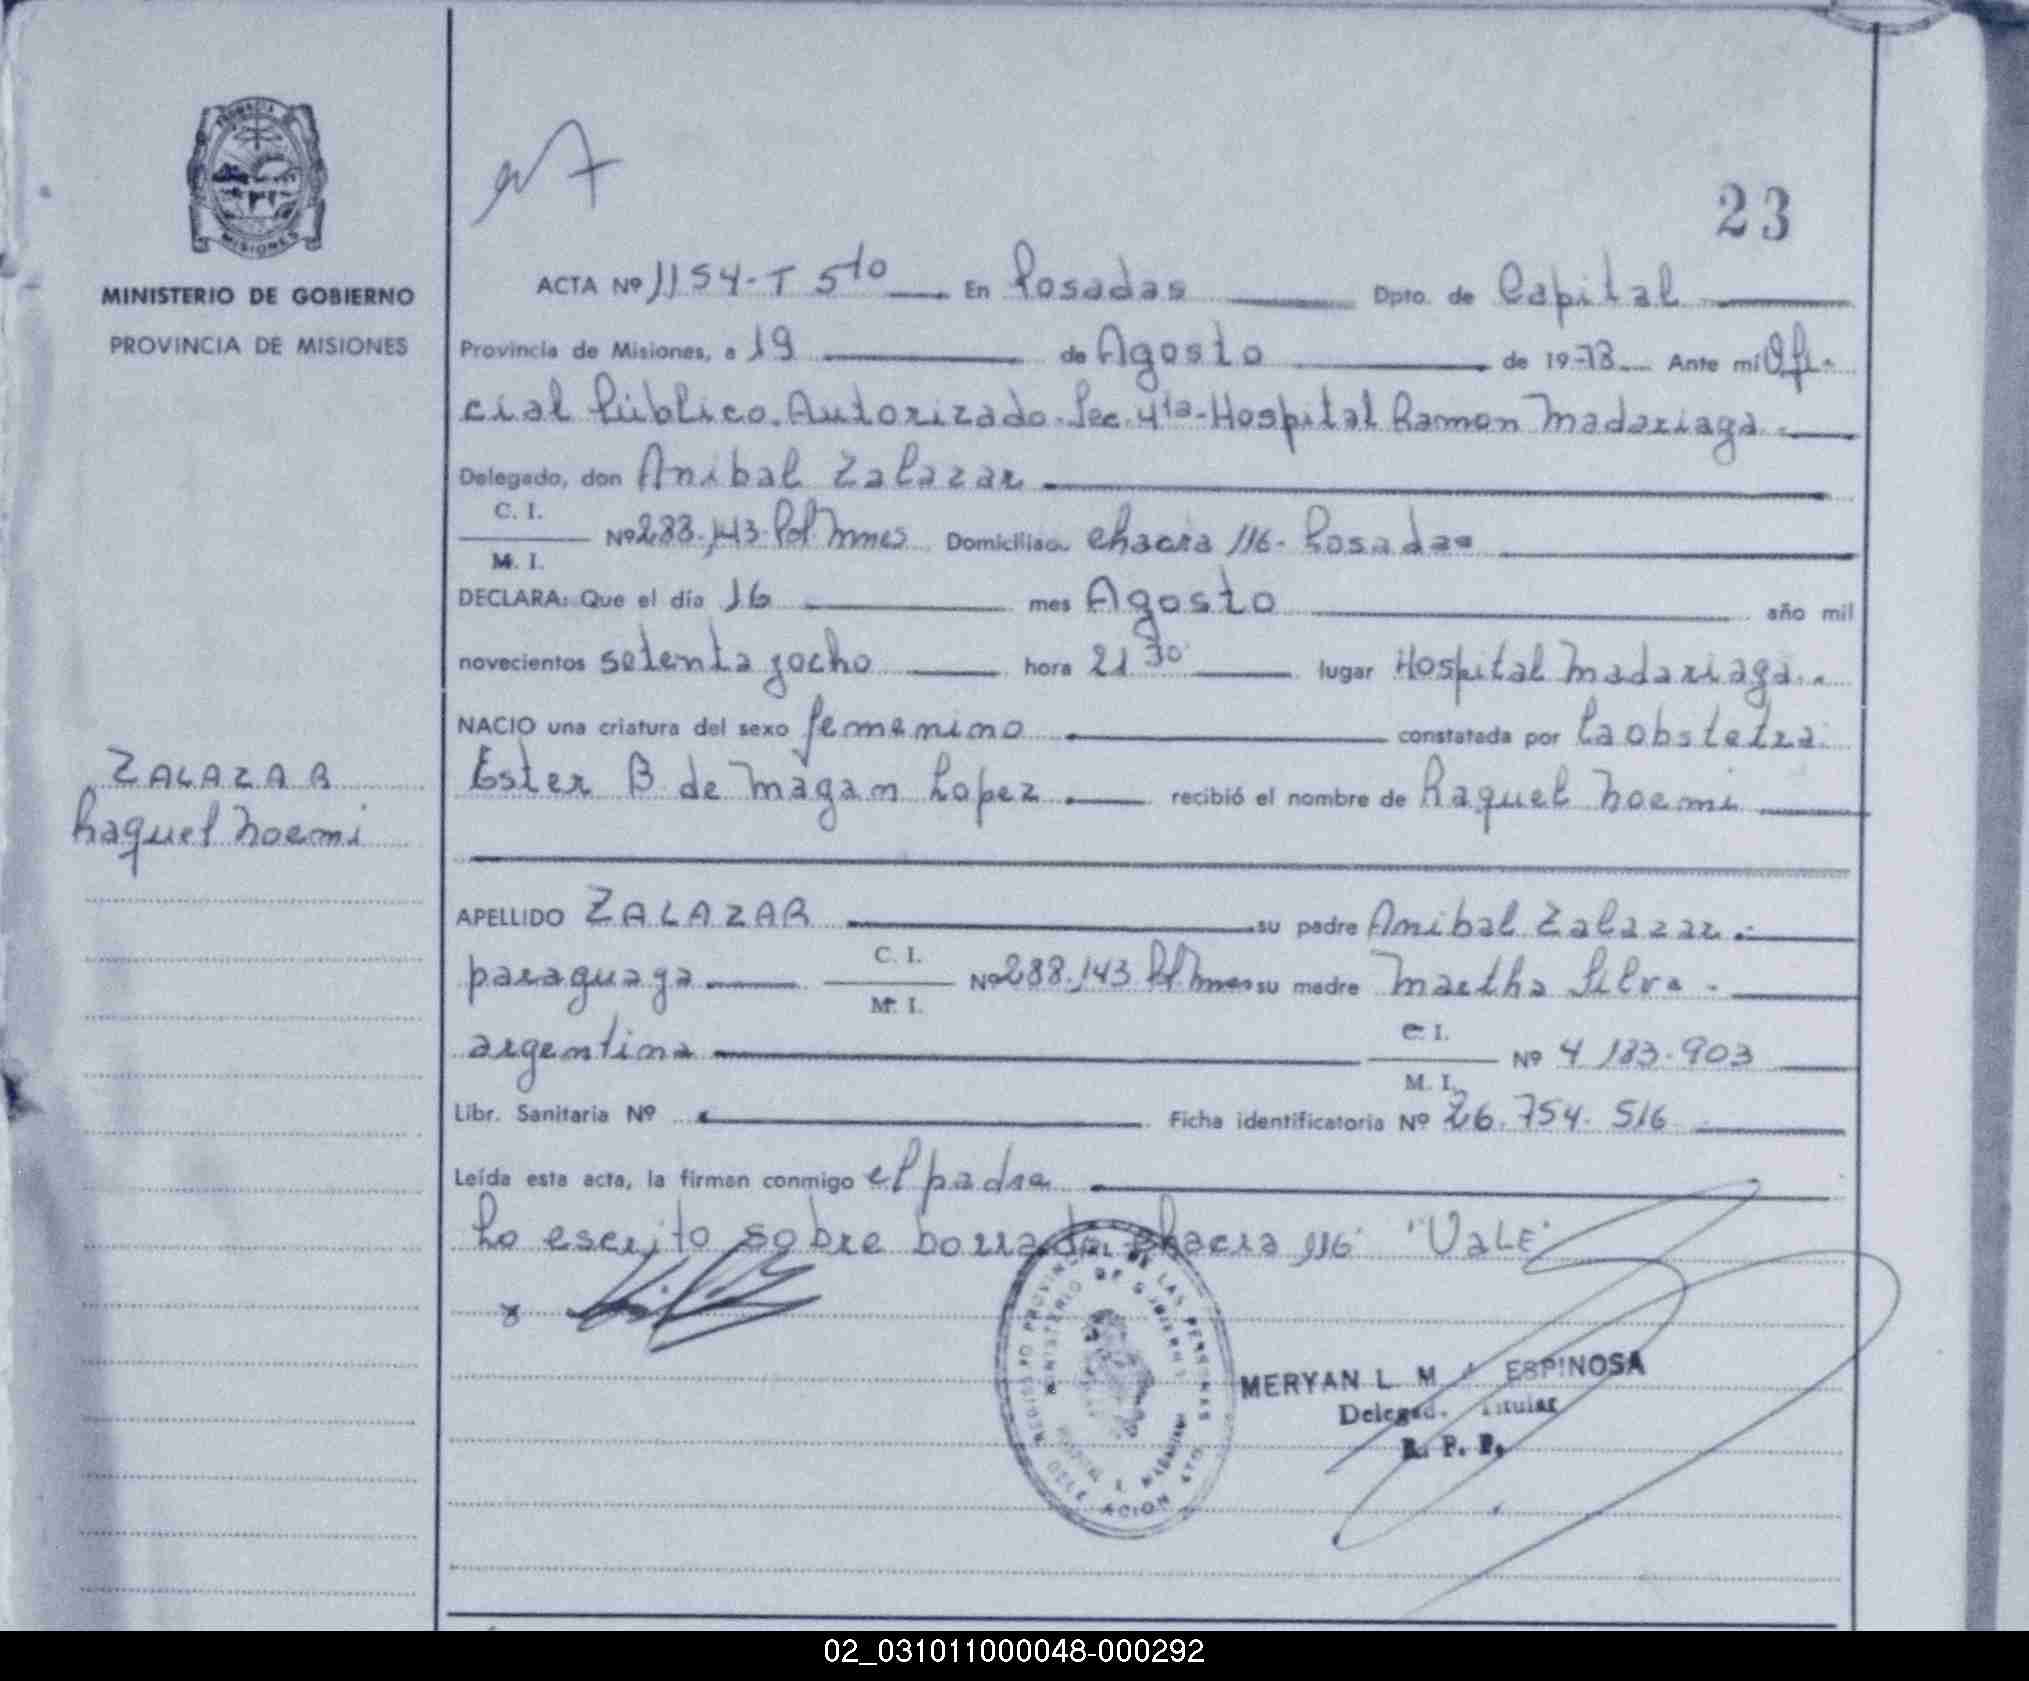 23
MINISTERIO DE GOBIERNO
PROVINCIA DE MISIONES
ACTA Nº 1154-T 5to En Posadas Dpto. de Capital
Provincia de Misiones, a 19 de Agosto de 1978 Ante mí Ofi-
cial Público. Autorizado. Sec. 4ta- Hospital Ramon Madariaga.
Delegado, don Anibal Zalazar
C. I.
Nº 288.143 Pol Mnes Domicilio Chacra 116- Posadas
M. I.
DECLARA: Que el día 16 mes Agosto año mil
novecientos setenta yocho hora 21 30 lugar Hospital Madariaga.
NACIO una criatura del sexo femenino constatada por La obstetra
Ester B. de Magan Lopez recibió el nombre de Raquel Noemi
ZALAZAR
Raquel Noemi
APELLIDO ZALAZAR su padre Anibal Zalazar.
C. I.
paraguaya Nº 288.143 Pol Mnes su madre Martha Silva.
M. I.
argentina C. I. Nº 4 183.903
M. I.
Libr. Sanitaria Nº Ficha identificatoria Nº 26.754.516
Leída esta acta, la firman conmigo el padre
Lo escrito sobre borrado Chacra 116 "VALE"
REGISTRO PROVINCIAL DE LAS PERSONAS
MINISTERIO DE GOBIERNO
DELEGACION 4TO
MERYAN L. M ESPINOSA
Delegad. Titular
R. P. P.
02_031011000048-000292